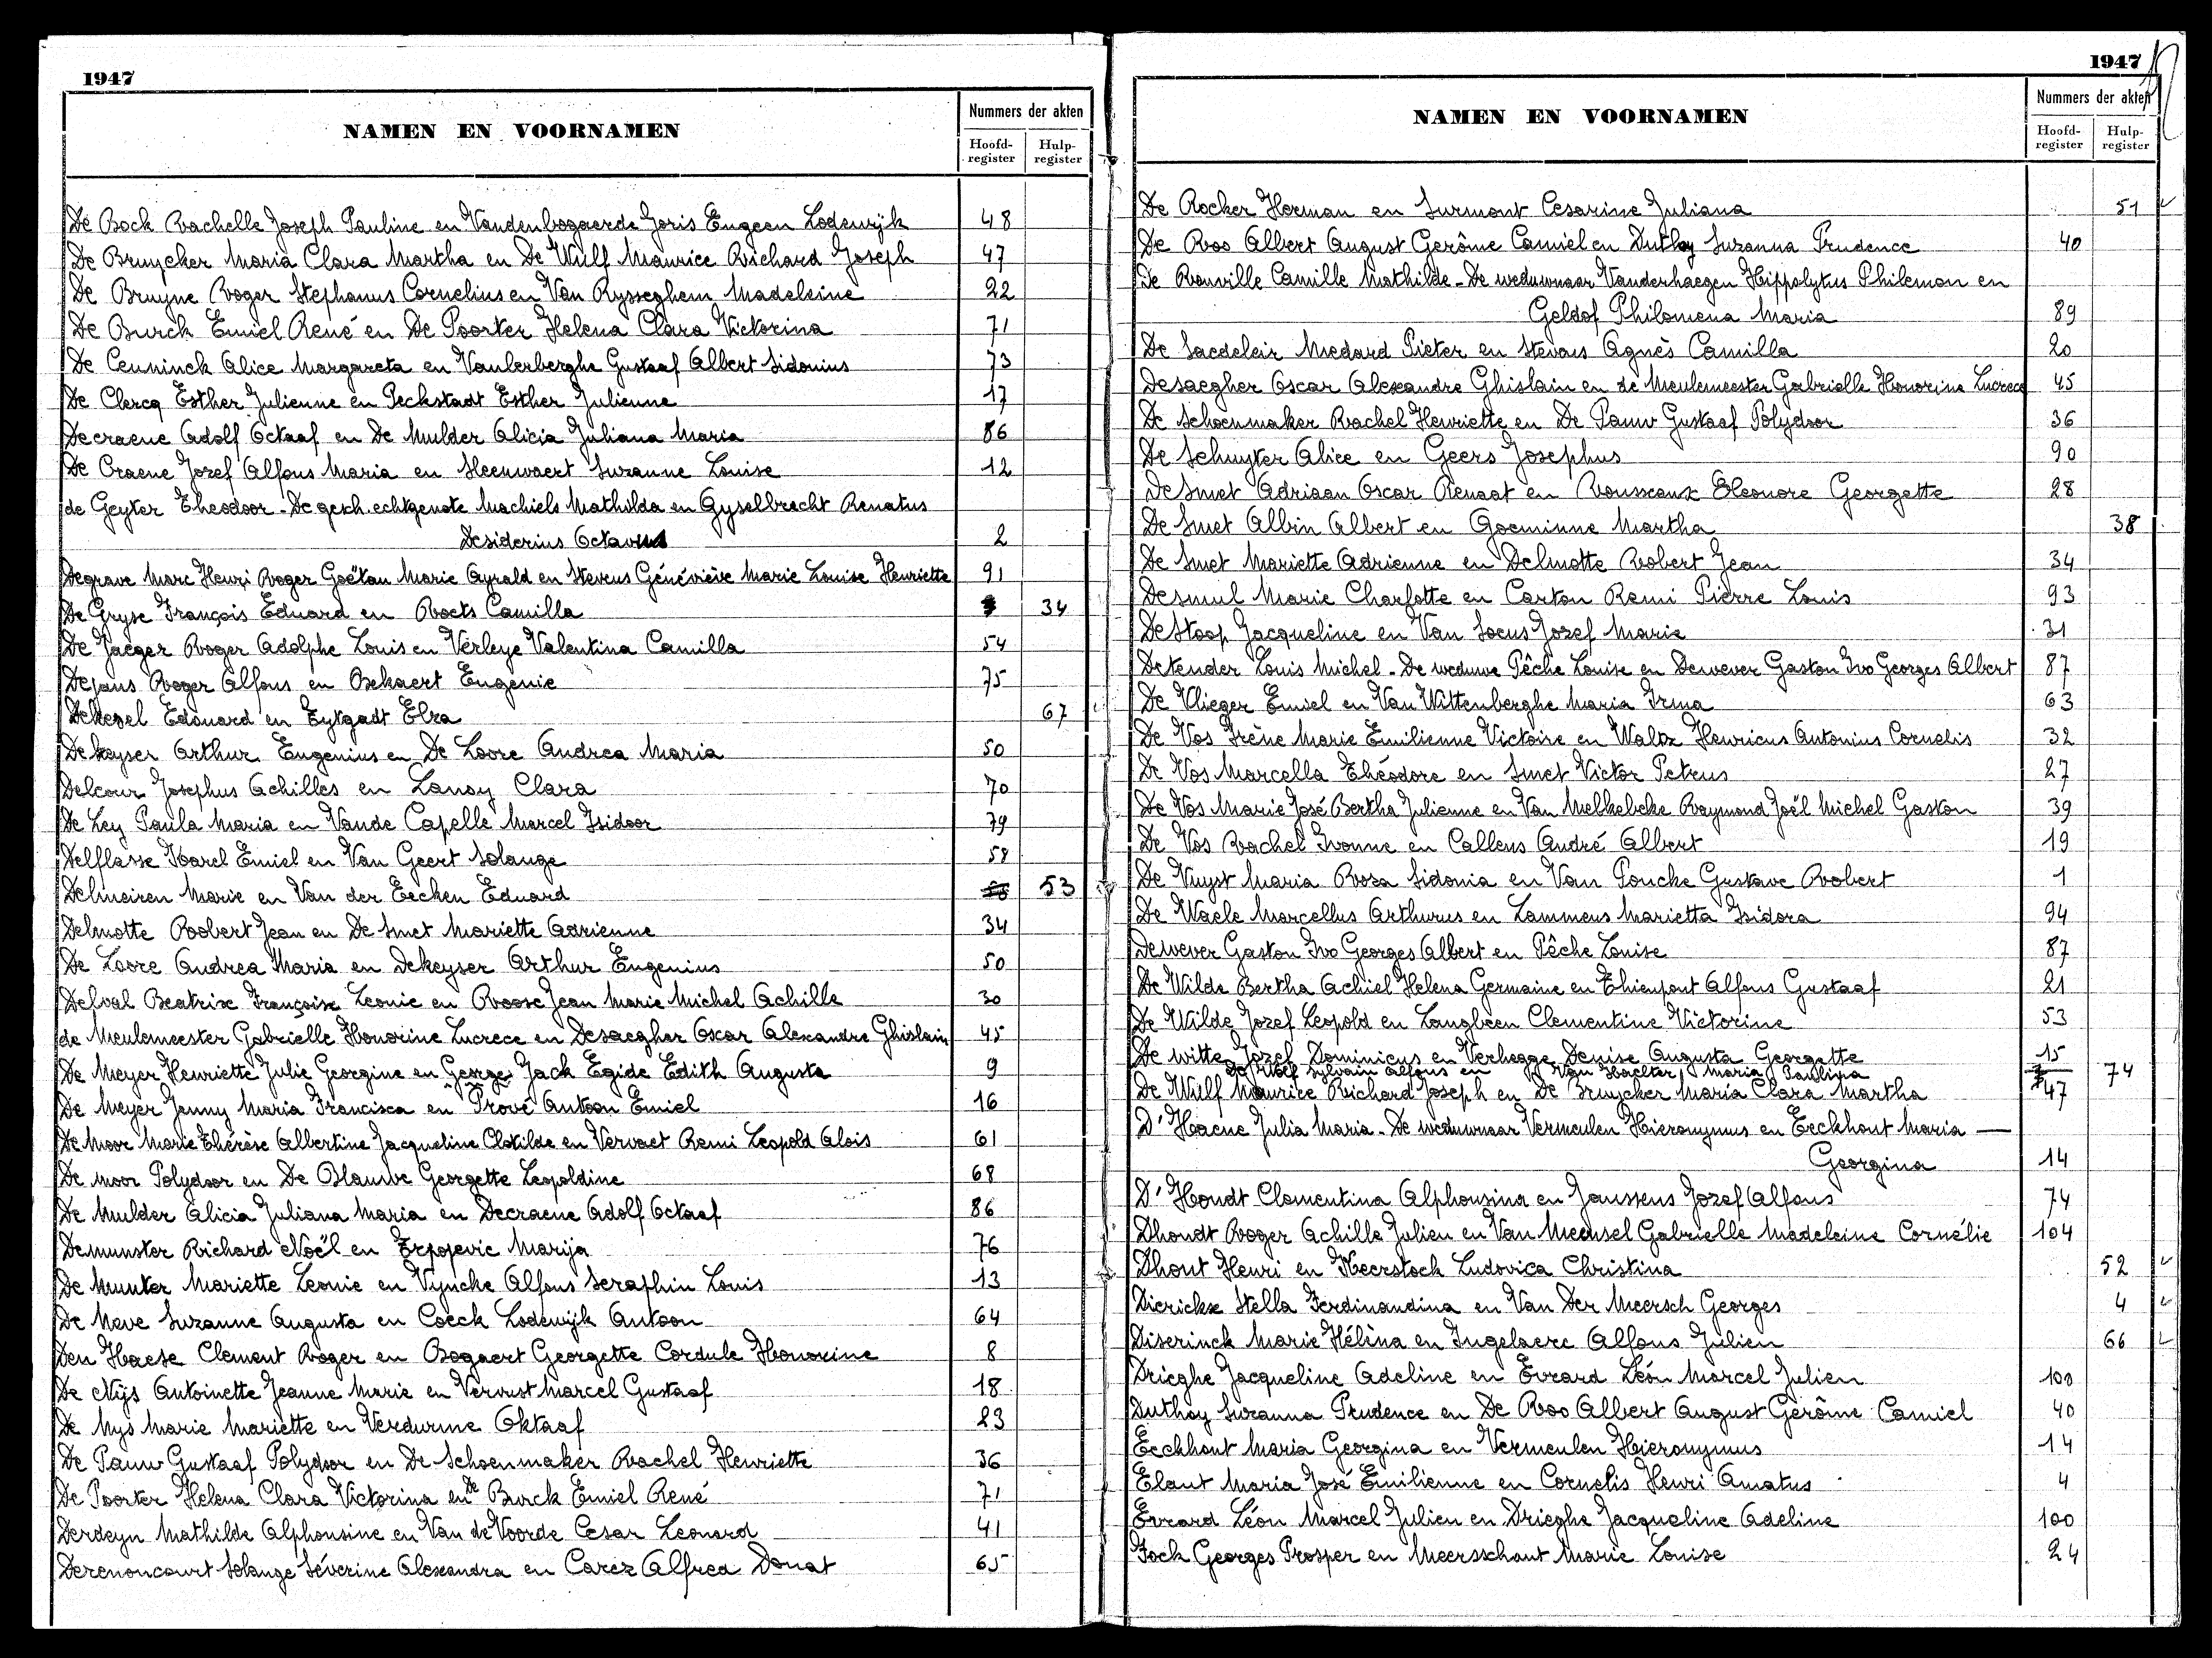 1947
NAMEN EN VOORNAMEN
Nummers der akten
Hoofd-register
Hulp-register
De Bock Rachelle Joseph Pauline en Vandenbogaerde Joris Eugeen Lodewijk 48
De Bruycker Maria Clara Martha en De Wulf Maurice Richard Joseph 47
De Bruyne Roger Stephanus Cornelius en Van Rysseghem Madeleine 22
De Burck Emiel René en De Poorter Helena Clara Victorina 71
De Ceuninck Alice Margareta en Vanlerberghe Gustaaf Albert Sidonius 73
De Clercq Esther Julienne en Peckstadt Esther Julienne 17
Decraene Adolf Octaaf en De Mulder Alicia Juliana Maria 86
De Craene Jozef Alfons Maria en Sleeuwaert Suzanne Louise 12
de Geyter Theodoor - De gesch. echtgenote Machiels Mathilda en Gyselbrecht Renatus
Desiderius Octavus 2
Degrave Marc Henri Roger Gaëtan Marie Gyrald en Stevens Généviève Marie Louise Henriette 91
De Gryse François Eduard en Roets Camilla 34
De Jaeger Roger Adolphe Louis en Verleye Valentina Camilla 54
Dejans Roger Alfons en Bekaert Eugenie 75
Dekezel Edouard en Eytgadt Elza 67
Dekeyser Arthur Eugenius en De Loore Andrea Maria 50
Delcour Josephus Achilles en Lanoy Clara 70
De Ley Paula Maria en Vande Capelle Marcel Isidoor 79
Delflasse Karel Emiel en Van Geert Solange 58
Delmeiren Marie en Van der Eecken Eduard 53
Delmotte Robert Jean en De Smet Mariette Adrienne 34
De Loore Andrea Maria en Dekeyser Arthur Eugenius 50
Delval Beatrix Françoise Leonie en Roose Jean Marie Michel Achille 30
de Meulemeester Gabrielle Honorine Lucrece en Desaegher Oscar Alexandre Ghislain 45
De Meyer Henriette Julie Georgine en George Jack Egide Edith Augusta 9
De Meyer Jenny Maria Francisca en Prové Antoon Emiel 16
De Moor Marie Thérèse Albertine Jacqueline Clotilde en Vervaet Remi Leopold Alois 61
De Moor Polydoor en De Blauwe Georgette Leopoldine 68
De Mulder Alicia Juliana Maria en Decraene Adolf Octaaf 86
Demunster Richard Noël en Marija 76
De Munter Mariette Leonie en Vyncke Alfons Seraphin Louis 13
De Neve Suzanne Augusta en Coeck Lodewijk Antoon 64
Den Haese Clement Roger en Bogaert Georgette Cordule Honorine 8
De Nijs Antoinette Jeanne Marie en Vervust Marcel Gustaaf 18
De Nys Marie Mariette en Verdurme Oktaaf 23
De Pauw Gustaaf Polydoor en De Schoenmaker Rachel Henriette 36
De Poorter Helena Clara Victorina en De Burck Emiel René 71
Derdeyn Mathilde Alphonsine en Van de Voorde Cesar Leonard 41
Derenoncourt Solange Séverine Alexandra en Carez Alfred Donat 65
1947
NAMEN EN VOORNAMEN
Nummers der akten
Hoofd-register
Hulp-register
De Rocker Herman en Surmont Cesarine Juliana 51
De Roo Albert August Gerôme Camiel en Duthoy Suzanna Prudence 40
De Rouville Camille Mathilde - De weduwnaar Vanderhaegen Hippolytus Philemon en
Geldof Philomena Maria 89
De Saedeleir Medard Pieter en Stevans Agnès Camilla 20
Desaegher Oscar Alexandre Ghislain en de Meulemeester Gabrielle Honorine Lucrece 45
De Schoenmaker Rachel Henriette en De Pauw Gustaaf Polydoor 36
De Schuyter Alice en Geers Josephus 90
De Smet Adriaan Oscar Renaat en Rousseaux Eleonore Georgette 28
De Smet Albin Albert en Goeminne Martha 38
De Smet Mariette Adrienne en Delmotte Robert Jean 34
Desmul Marie Charlotte en Carton Remi Pierre Louis 93
De Stoop Jacqueline en Van Socus Jozef Marie 31
Detender Louis Michel - De weduwe Pêche Louise en Dewever Gaston Ivo Georges Albert 87
De Vlieger Emiel en Van Wittenberghe Maria Irma 63
De Vos Irène Marie Emilienne Victoire en Waltz Henricus Antonius Cornelis 32
De Vos Marcella Théodore en Smet Victor Petrus 27
De Vos Marie José Bertha Julienne en Van Melkebeke Raymond Joël Michel Gaston 39
De Vos Rachel Ivonne en Callens André Albert 19
De Vuyst Maria Roza Sidonia en Van Poucke Gustave Robert 1
De Waele Marcellus Arthurus en Lammens Marietta Isidora 94
Dewever Gaston Ivo Georges Albert en Pêche Louise 87
De Wilde Bertha Achiel Helena Germaine en Thienpont Alfons Gustaaf 21
De Wilde Jozef Leopold en Langbeen Clementine Victorine 53
De Witte Jozef Dominicus en Verhegge Denise Augusta Georgette 15
De Wolf Sylvain Alfons en Van Haelter Maria Paulina 74
De Wulf Maurice Richard Joseph en De Bruycker Maria Clara Martha 47
D'Haene Julia Maria - De weduwnaar Vermeulen Hieronymus en Eeckhout Maria
Georgina 14
D'Hondt Clementina Alphonsina en Janssens Jozef Alfons 74
Dhondt Roger Achille Julien en Van Meensel Gabrielle Madeleine Cornélie 104
Dhont Henri en Heerstock Ludovica Christina 52
Dierickx Stella Ferdinandina en Van Der Meersch Georges 4
Diserinck Marie Hélèna en Ingelaere Alfons Julien 66
Drieghe Jacqueline Adeline en Evrard Léon Marcel Julien 100
Duthoy Suzanna Prudence en De Roo Albert August Gerôme Camiel 40
Eeckhout Maria Georgina en Vermeulen Hieronymus 14
Elaut Maria José Emilienne en Cornelis Henri Amatus 4
Evrard Léon Marcel Julien en Drieghe Jacqueline Adeline 100
Fock Georges Prosper en Meersschaut Marie Louise 24